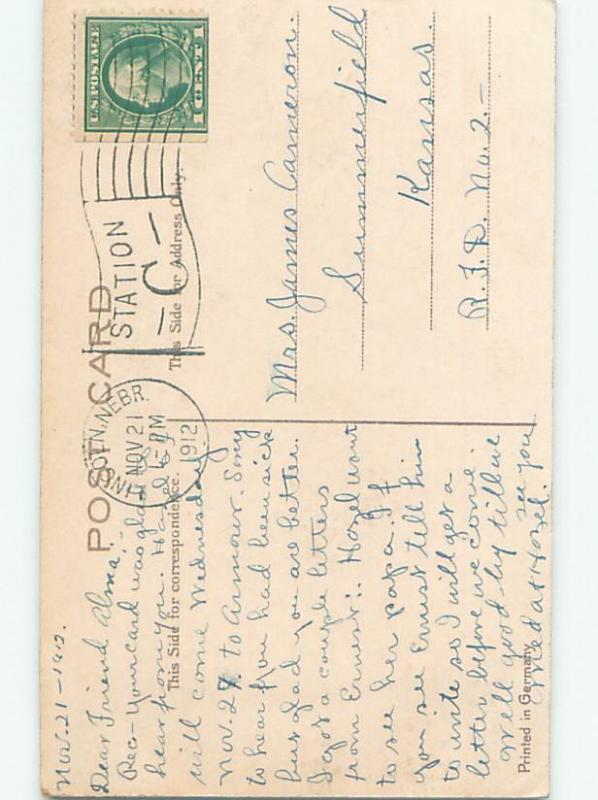 POST CARD
This Side for correspondence.
This Side for Address Only.
U.S. POSTAGE
1 CENT 1
LINCOLN, NEBR.
NOV 21
1-PM
1912
STATION
-C-
Nov. 21-1912.
Dear Friend Alma:-
Rec- Your card was glad to
hear from you. Hazel &
will come Wednesday
Nov. 27 to Armour. Sorry
to hear you had been sick
but glad you are better.
I got a couple letters
from Ernest. Hazel want
to see her papa. If
you see Ernest tell him
to write so I will get a
letter before we come.
Well good by till we
see you
& Hazel.
Mrs. James Cameron.
Summerfield
Kansas.
R.F.D. No. 2.-
Printed in Germany